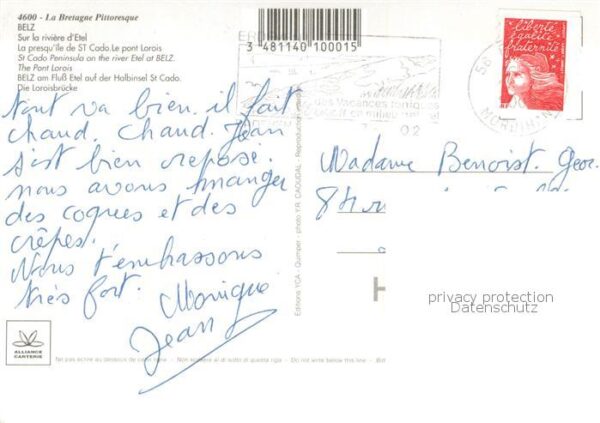 4600 - La Bretagne Pittoresque
BELZ
Sur la rivière d'Etel
La presqu'île de ST Cado. Le pont Lorois
St Cado Peninsula on the river Etel at BELZ.
The Pont Lorois
BELZ am Fluß Etel auf der Halbinsel St Cado.
Die Loroisbrücke
3 481140 100015
des Vacances toniques
02
56
MORBIHAN
liberté
égalité
fraternité
RF
Tout va bien. il fait
chaud, chaud. Jean
s'est bien reposé.
nous avons manger
des coques et des
crêpes.
Nous t'embrassons
très fort. Monique
Jean
Madame Benoist. Geor.
8
H
privacy protection
Datenschutz
Editions YCA - Quimper - photo Y.R. CAOUDAL - Reproduction
ALLIANCE
CARTERIE
Ne pas écrire au dessous de cette ligne - Non scrivere al di sotto di questa riga - Do not write below this line - Bitt